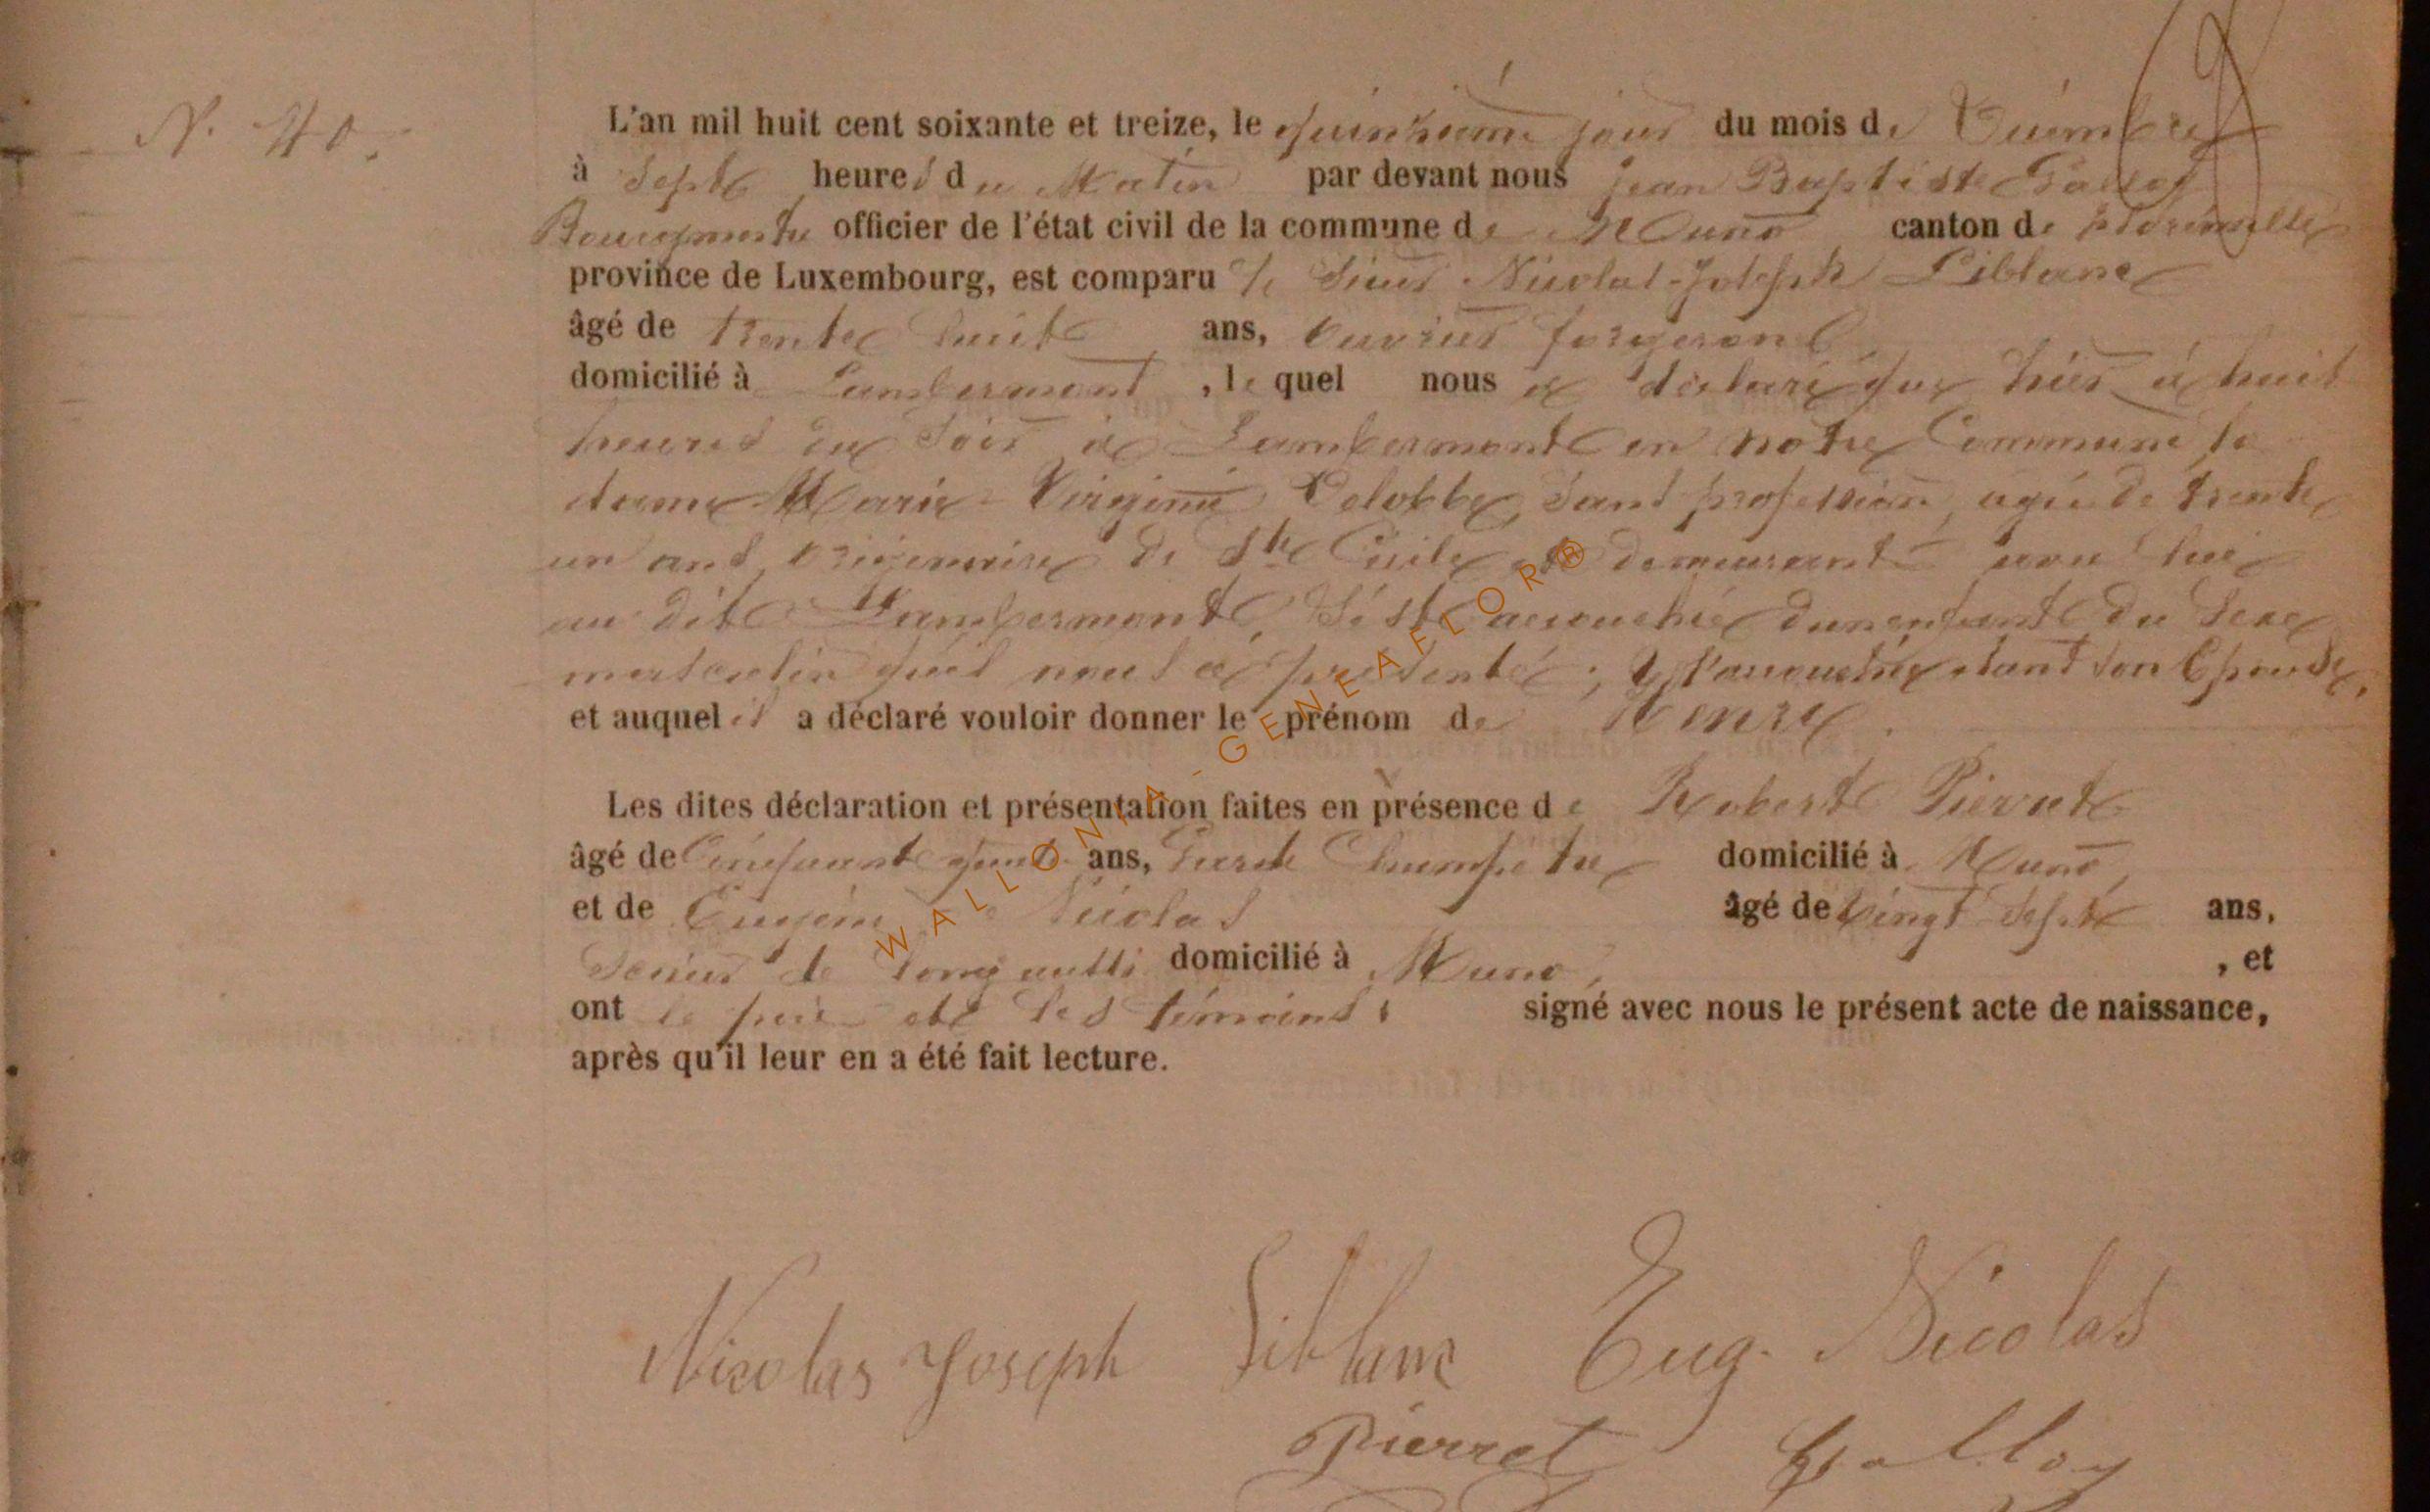 N. 40.
L'an mil huit cent soixante et treize, le quinzième jour du mois de Décembre
à Sept heures du Matin par devant nous jean Baptiste Galloy
Bourgmestre officier de l'état civil de la commune de Muno canton de Florenville
province de Luxembourg, est comparu le Sieur Nicolas-Joseph Liblanc
âgé de trente huit ans, Ouvrier forgeron
domicilié à Lambermont, le quel nous a déclaré que hier à huit
heures du Soir à Lambermont en notre Commune la
dame Marie-Virginie Delobbe, Sans profession, agée de trente
un ans, originaire de Ste Cécile et demeurant avec lui
au dit Lambermont, S'est accouchée d'un enfant du Sexe
masculin qu'il nous a présenté; l'accouchée étant son Epouse,
et auquel il a déclaré vouloir donner le prénom de Henri.
Les dites déclaration et présentation faites en présence de Robert Pierret
âgé de Cinquante ans, Garde Champêtre domicilié à Muno,
et de Eugène Nicolas âgé de vingt Sept ans,
Scieur de long domicilié à Muno, , et
ont le père et les témoins signé avec nous le présent acte de naissance,
après qu'il leur en a été fait lecture.
Nicolas Joseph Liblanc Eug. Nicolas
Pierret Galloy
WALLONIA-GENEAFLOR®